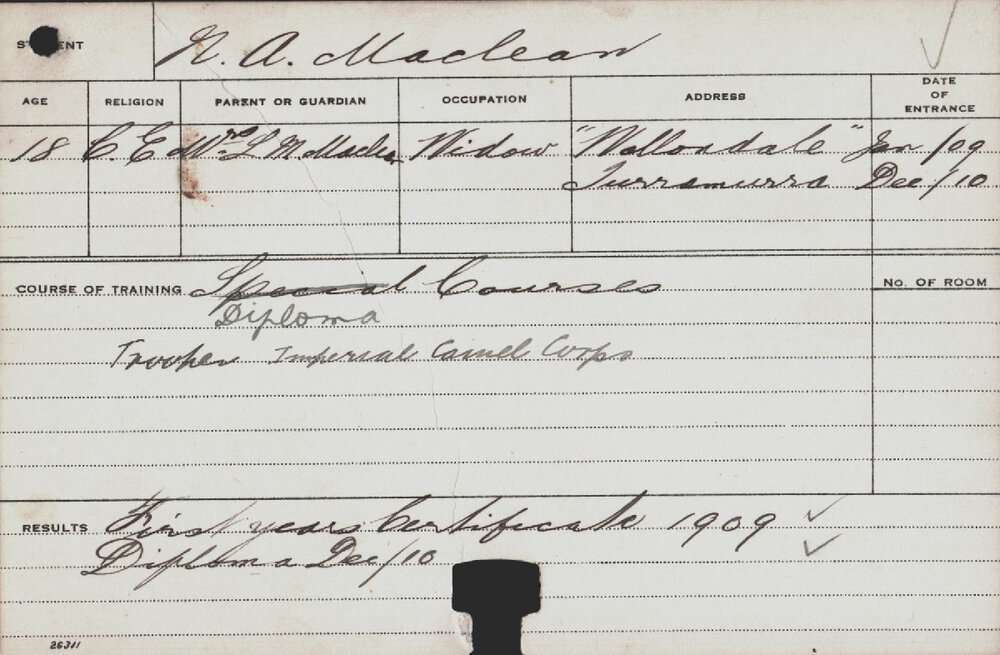 STUDENT N. A. Maclean
AGE RELIGION PARENT OR GUARDIAN OCCUPATION ADDRESS DATE OF ENTRANCE
18 C E Mrs L N Maclean Widow "Wollondale" Jan/09
Turramurra Dec/10
COURSE OF TRAINING Special Courses No. OF ROOM
Diploma
Trooper Imperial Camel Corps
RESULTS First years Certificate 1909
Diploma Dec/10
26311